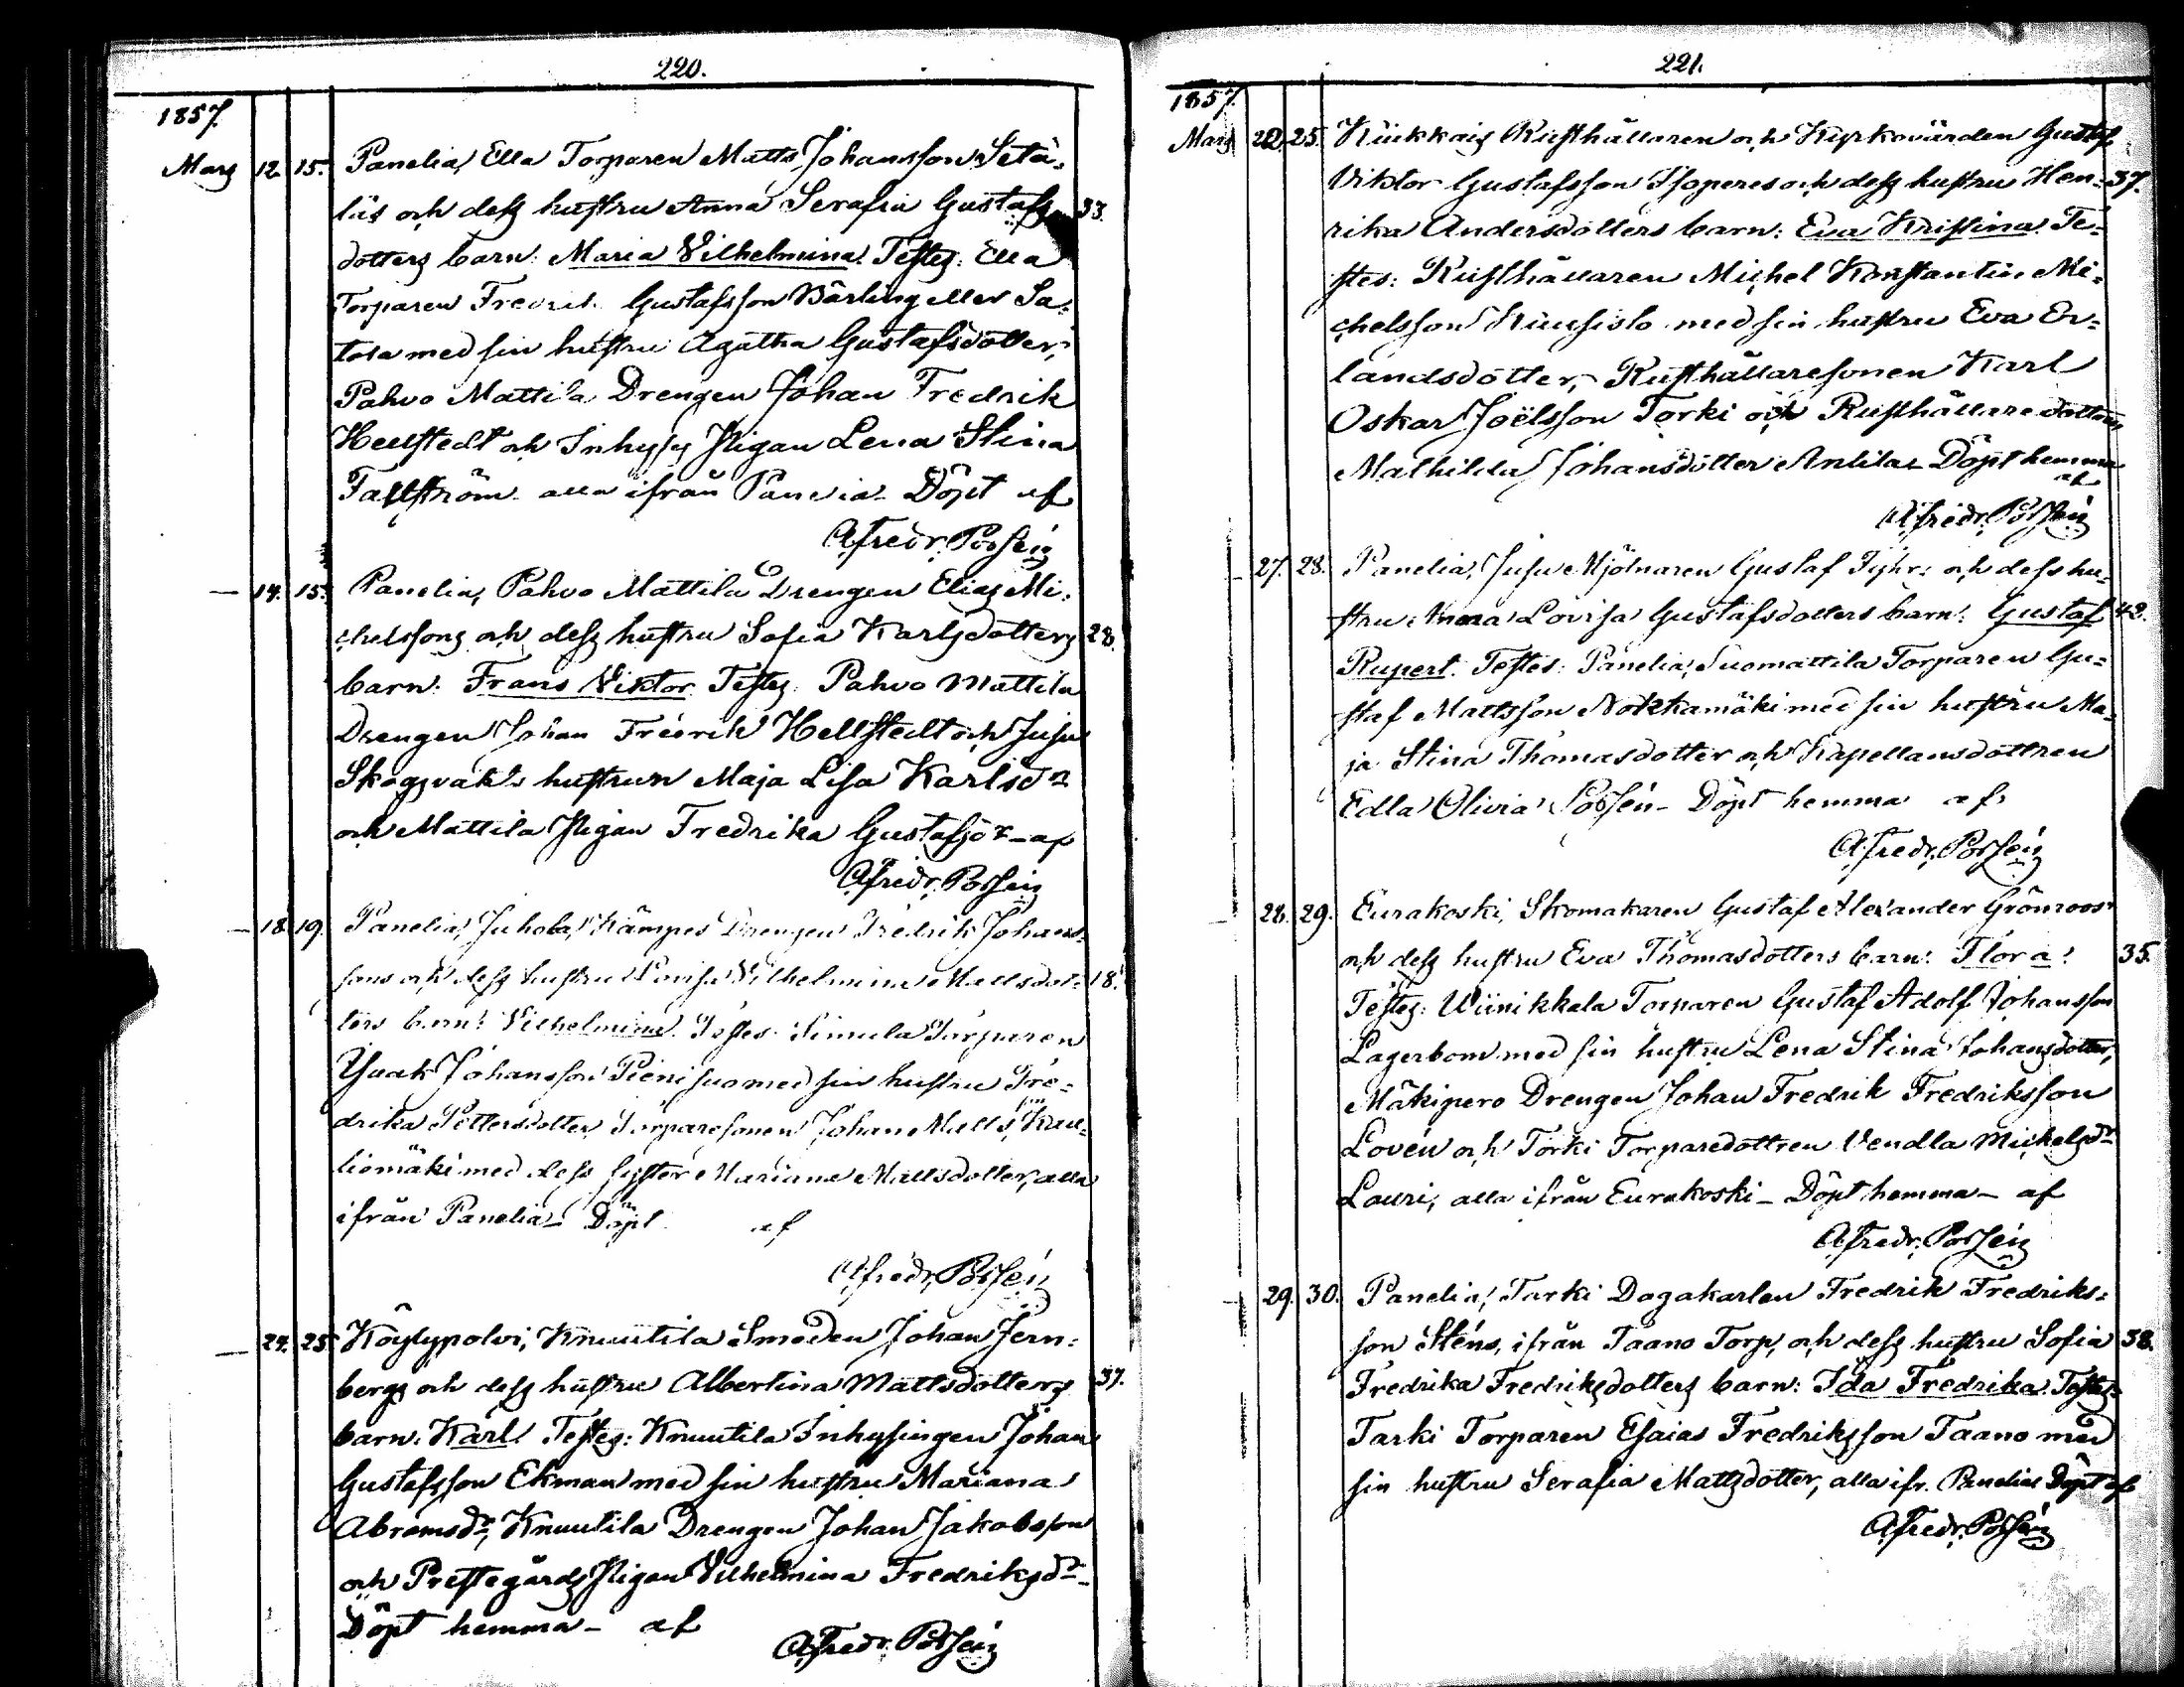 220.
1857.
Mars 12. 15. Panelia, Ella Torparen Matts Johansson Setä-
läs och dess hustru Anna Serafia Gustafs- 33.
dotters barn: Maria Vilhelmina. Testes: Ella
Torparen Fredrik Gustafsson Bärling eller Sa-
tola med sin hustru Agatha Gustafsdotter,
Pahvo Mattila Drengen Johan Fredrik
Hellstedt och Inhyses Pigan Lena Stina
Fallström alla ifrån Panelia. Döpt af
A. Fredr. Porsén
— 14. 15. Panelia, Pahvo Mattila Drengen Elias Mi-
chelssons och dess hustru Sofia Karlsdotters 28.
barn: Frans Viktor. Testes: Pahvo Mattila
Drengen Johan Fredrik Hellstedt och Jusu
Skogsvakts hustrun Maja Lisa Karlsdr
och Mattila Pigan Fredrika Gustafsdr – af
A. Fredr. Porsén
— 18. 19. Panelia, Juhola, Kämpes Drengen Fredrik Johans-
sons och dess hustru Lovisa Vilhelmina Mattsdot- 18.
ters barn: Vilhelmina. Testes: Simula Torparen
Isaak Johansson Pienisuo med sin hustru Fre-
drika Pettersdotter, Torparesonen Johan Mattsson Kal-
liomäki med dess syster Mariana Mattsdotter, alla
ifrån Panelia – Döpt af
A. Fredr. Porsén
— 24. 25. Köylypolvi, Knuutila Smeden Johan Jern-
bergs och dess hustru Albertina Mattsdotters 37.
barn: Karl. Testes: Knuutila Inhysingen Johan
Gustafsson Ekman med sin hustru Mariana
Abramsdr, Knuutila Drengen Johan Jakobsson
och Prestegårds Pigan Vilhelmina Fredriksdr –
Döpt hemma – af
A. Fredr. Porsén
221.
1857.
Mars 22. 25. Kiukkais Rusthållaren och Kyrkovärden Gustaf
Viktor Gustafsson Isoperes och dess hustru Hen- 37.
rika Andersdotters barn: Eva Kristina. Te-
stes: Rusthållaren Michel Konstantin Mi-
chelsson Kuusisto med sin hustru Eva Er-
landsdotter, Rusthållaresonen Karl
Oskar Joëlsson Torki och Rusthållaredottren
Mathilda Johansdotter Anttila. Döpt hemma
af
A. Fredr. Porsén
— 27. 28. Panelia, Jusu Mjölnaren Gustaf Fyhr: och dess hu-
stru Anna Lovisa Gustafsdotters barn: Gustaf 42.
Rupert. Testes: Panelia, Suomattila Torparen Gu-
staf Mattsson Nokkamäki med sin hustru Ma-
ja Stina Thomasdotter och Kapellansdottren
Edla Olivia Porsén – Döpt hemma af
A. Fredr. Porsén
— 28. 29. Eurakoski, Skomakaren Gustaf Alexander Grönroos
och dess hustru Eva Thomasdotters barn: Flora. 35.
Testes: Wiinikkala Torparen Gustaf Adolf Johansson
Lagerbom med sin hustru Lena Stina Johansdotter,
Mäkipero Drengen Johan Fredrik Fredriksson
Lovén och Torki Torparedottren Vendla Michelsdr
Lauri, alla ifrån Eurakoski – Döpt hemma – af
A. Fredr. Porsén
— 29. 30. Panelia, Tarki Dagakarlen Fredrik Fredriks-
son Sténs, ifrån Taano Torp, och dess hustru Sofia 38.
Fredrika Fredriksdotters barn: Ida Fredrika. Testes:
Tarki Torparen Esaias Fredriksson Taano med
sin hustru Serafia Mattsdotter, alla ifr. Panelia. Döpt af
A. Fredr. Porsén